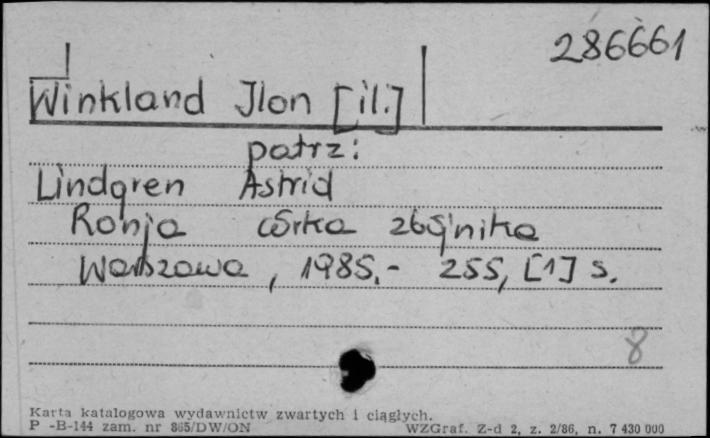 286661
Winkland Jlon [il.]
patrz:
Lindgren Astrid
Ronja córka zbójnika
Warszawa, 1985.- 255, [1] s.
8
Karta katalogowa wydawnictw zwartych i ciągłych.
P -B-144 zam. nr 865/DW/ON WZGraf. Z-d 2, z. 2/86, n. 7 430 000